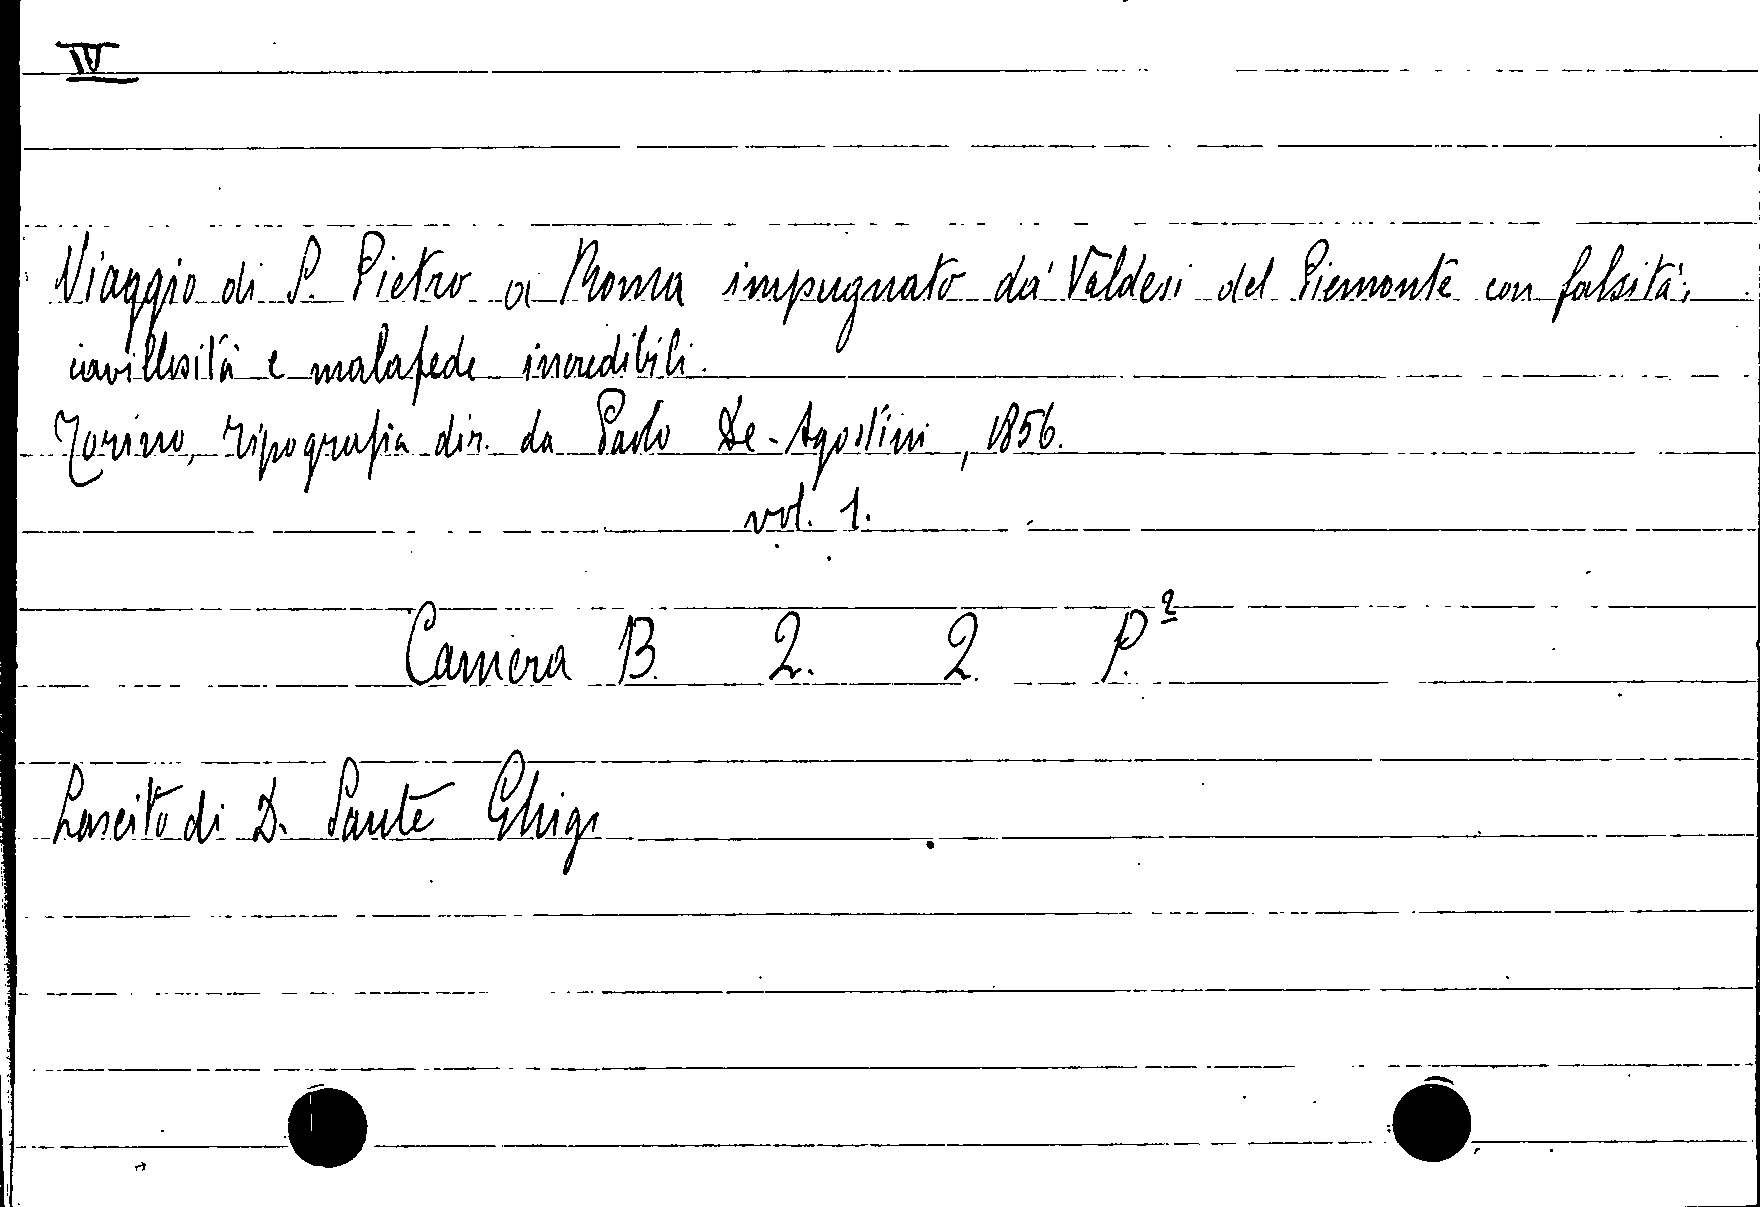 IV
Viaggio di S. Pietro a Roma impugnato da' Valdesi del Piemonte con falsità,
cavillosità e malafede incredibili.
Torino, tipografia dir. da Paolo De-Agostini, 1856.
vol. 1.
Camera B. 2. 2. P.²
Lascito di D. Sante Ghigi